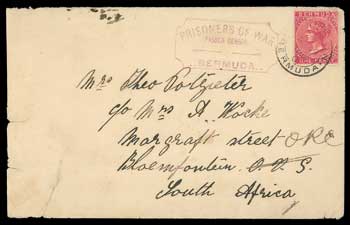 PRISONERS OF WAR
PASSED CENSOR
BERMUDA
BERMUDA
BERMUDA
Mrs Theo Potgieter
c/o Mrs A. Hocke
Margraff street ORC
Bloemfontein O.V.S.
South Africa